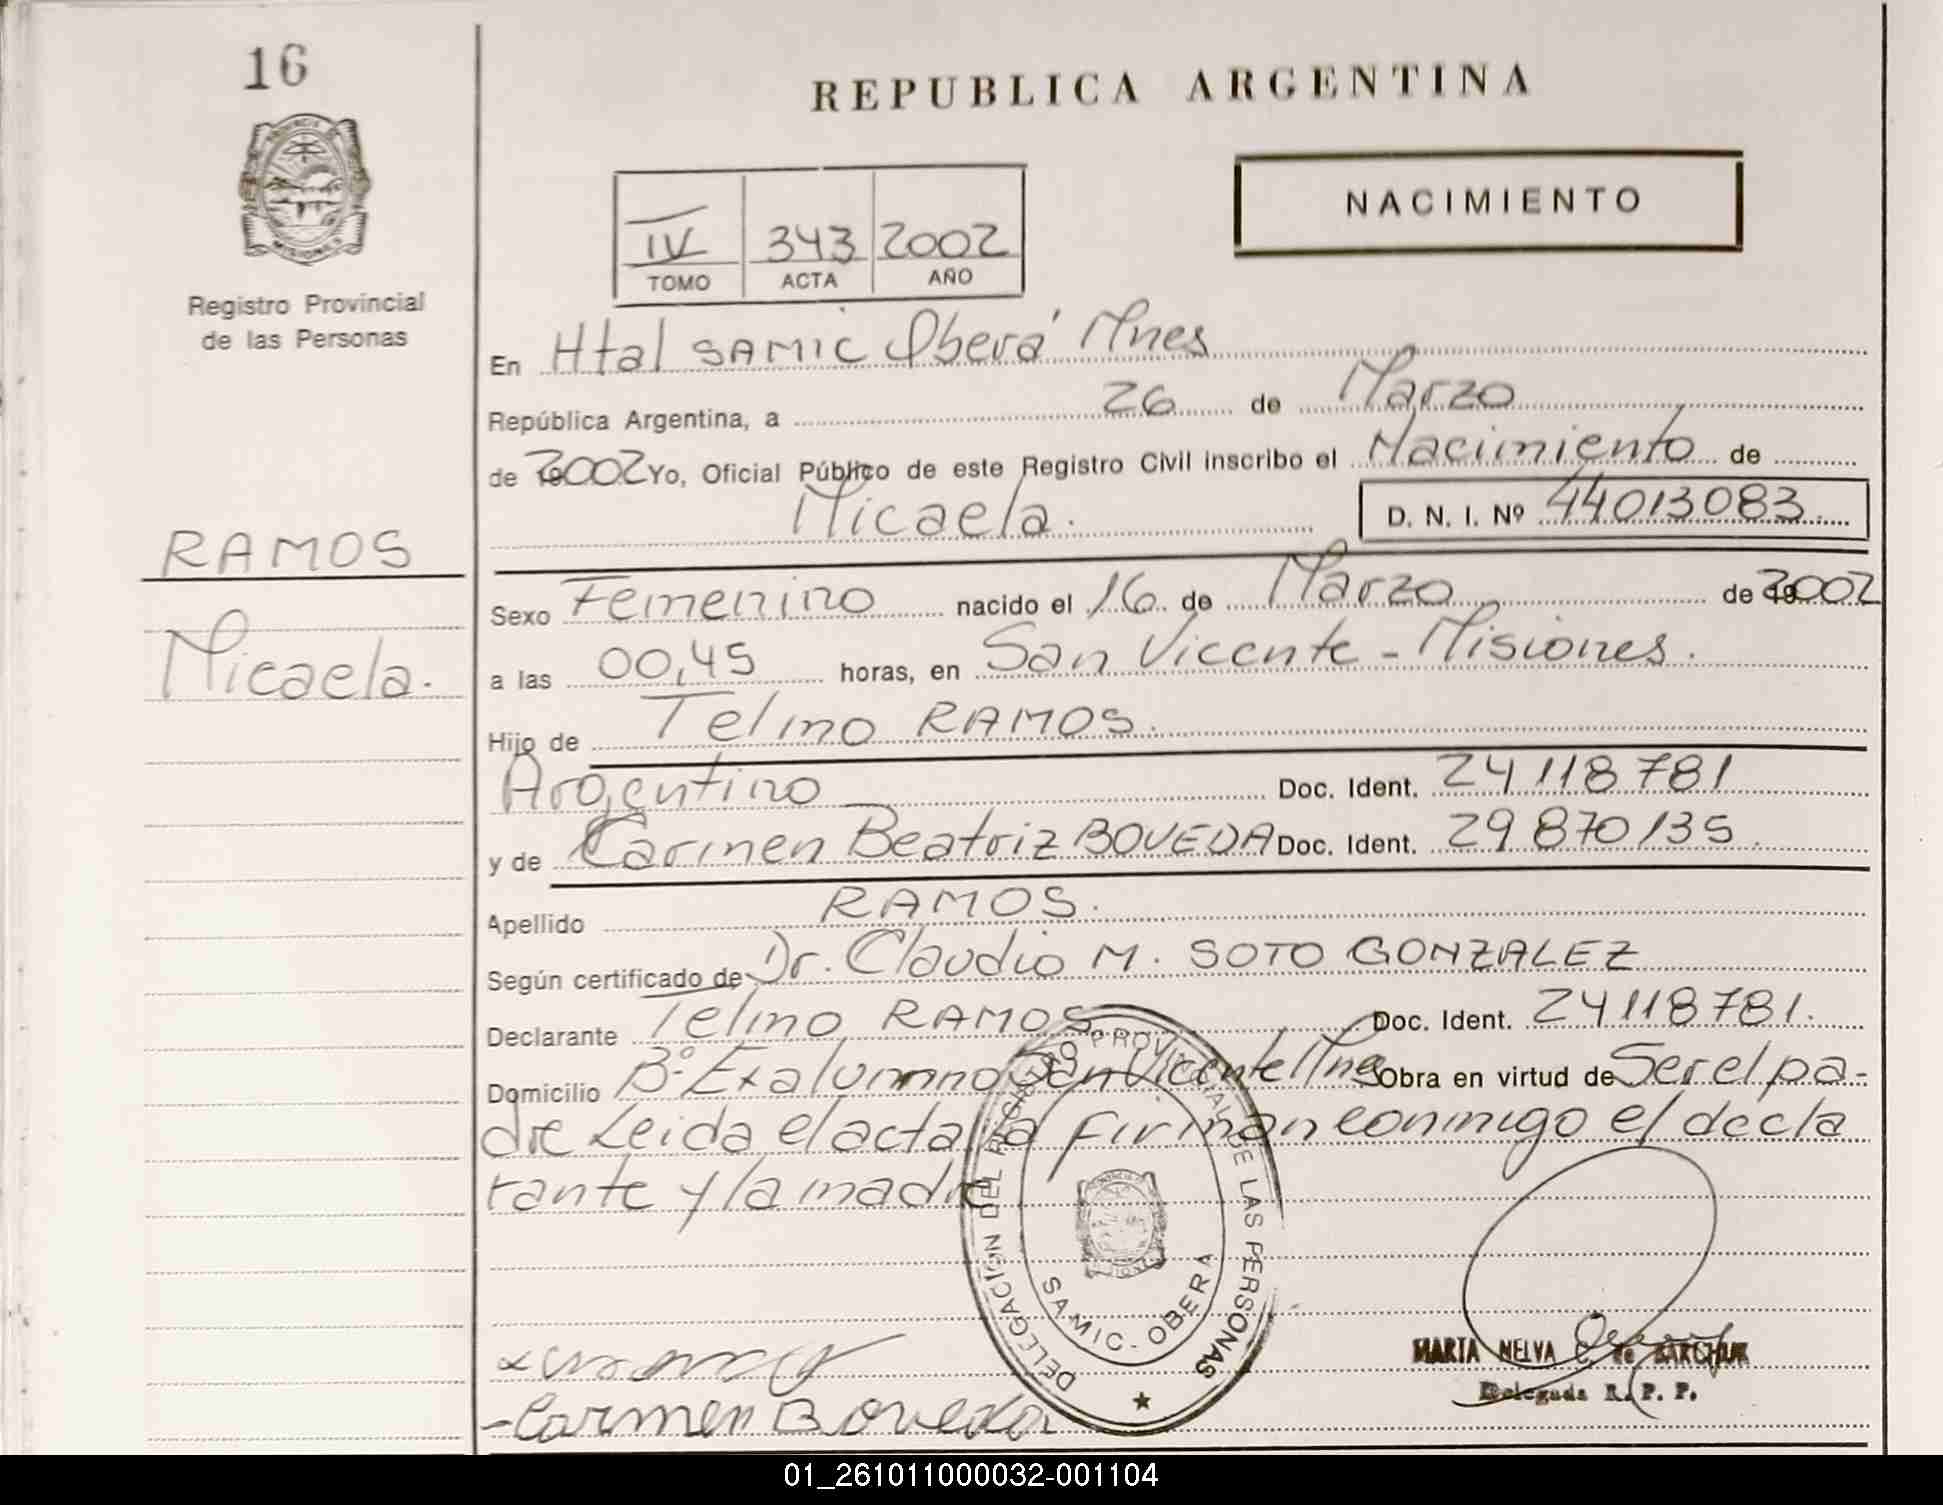 16
REPUBLICA ARGENTINA
NACIMIENTO
IV 343 2002
TOMO ACTA AÑO
Registro Provincial
de las Personas
En Htal SAMIC Oberá Mnes
República Argentina, a 26 de Marzo
de 2002 Yo, Oficial Público de este Registro Civil inscribo el Nacimiento de
Micaela. D. N. I. Nº 44013083.
RAMOS
Micaela.
Sexo Femenino nacido el 16 de Marzo de 2002
a las 00,45 horas, en San Vicente - Misiones.
Hijo de Telmo RAMOS.
Argentino Doc. Ident. 24118781
y de Carmen Beatriz BOVEDA Doc. Ident. 29870135.
Apellido RAMOS.
Según certificado de Dr. Claudio M. SOTO GONZALEZ
Declarante Telmo RAMOS. Doc. Ident. 24118781.
Domicilio Bº Exalumno San Vicente Mnes Obra en virtud de Ser el pa-
dre Leida el acta la firman conmigo el decla
rante y la madre
DELEGACION DEL REGISTRO PROVINCIAL DE LAS PERSONAS
SAMIC - OBERA
MISIONES
MARTA NELVA de BARCHUK
Delegada R. P. P.
Carmen Boveda
01_261011000032-001104